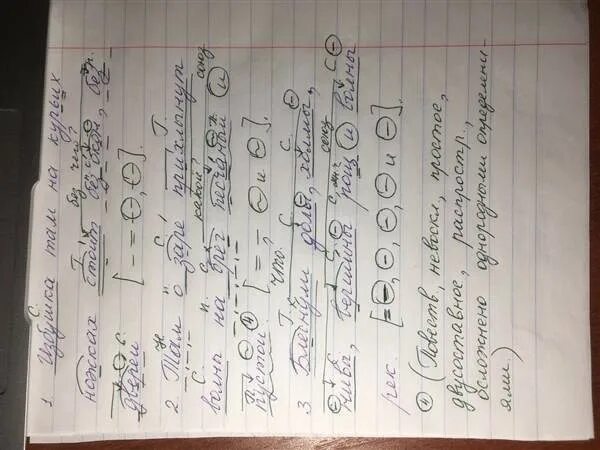 1 Избушка там на курьих
ножках стоит без окон, без
дверей
[- = ⊖, ⊖].
2. Там о заре прихлынут
волны на брег песчаный и
пустой
[= -, ⊖ и ⊖].
3 Блеснули долы, холмы,
нивы, вершины рощ и волны
рек. [= ⊖, ⊖, ⊖, ⊖ и ⊖].
(Повеств, невоскл, простое,
двусоставное, распростр.,
осложнено однородными определени-
ями.)